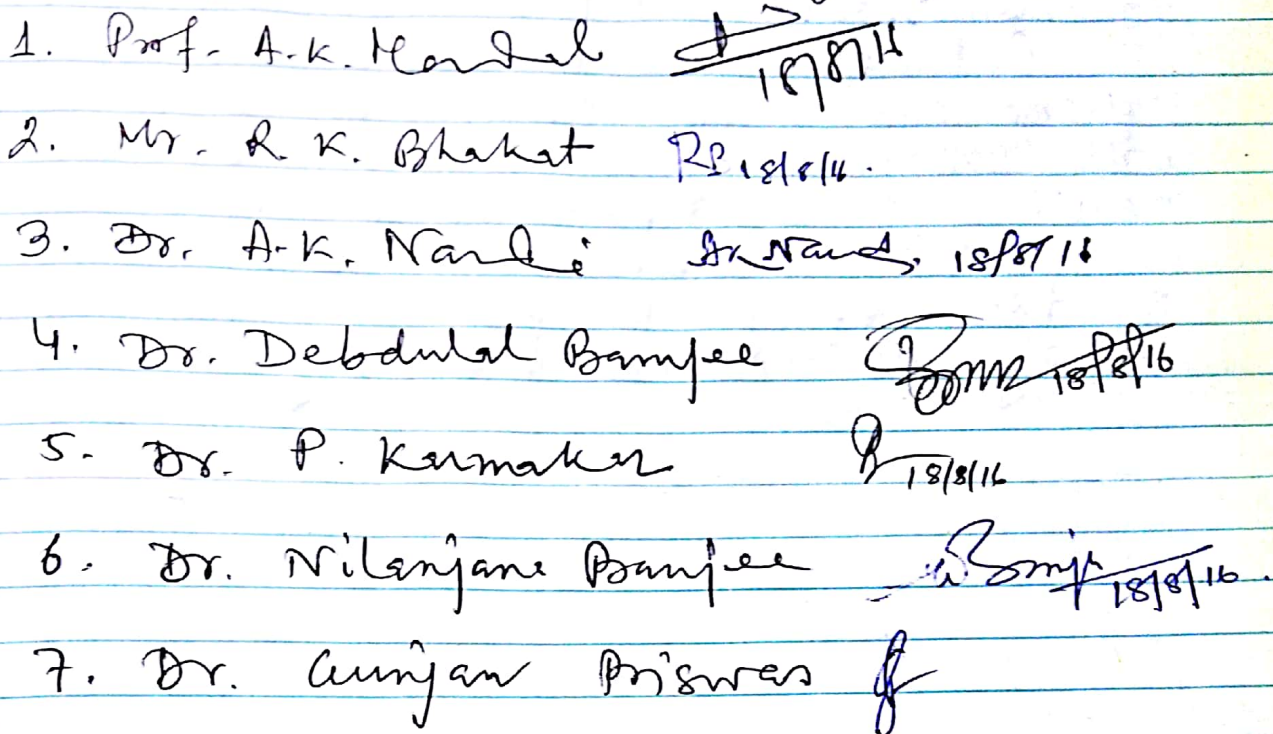 1. Prof. A.K. Mandal 18/8/16
2. Mr. R. K. Bhakat RB 18/8/16.
3. Dr. A.K. Nandi AK Nandi 18/8/16
4. Dr. Debdulal Banerjee 18/8/16
5. Dr. P. Karmakar 18/8/16
6. Dr. Nilanjana Banerjee 18/8/16.
7. Dr. Gunjan Biswas